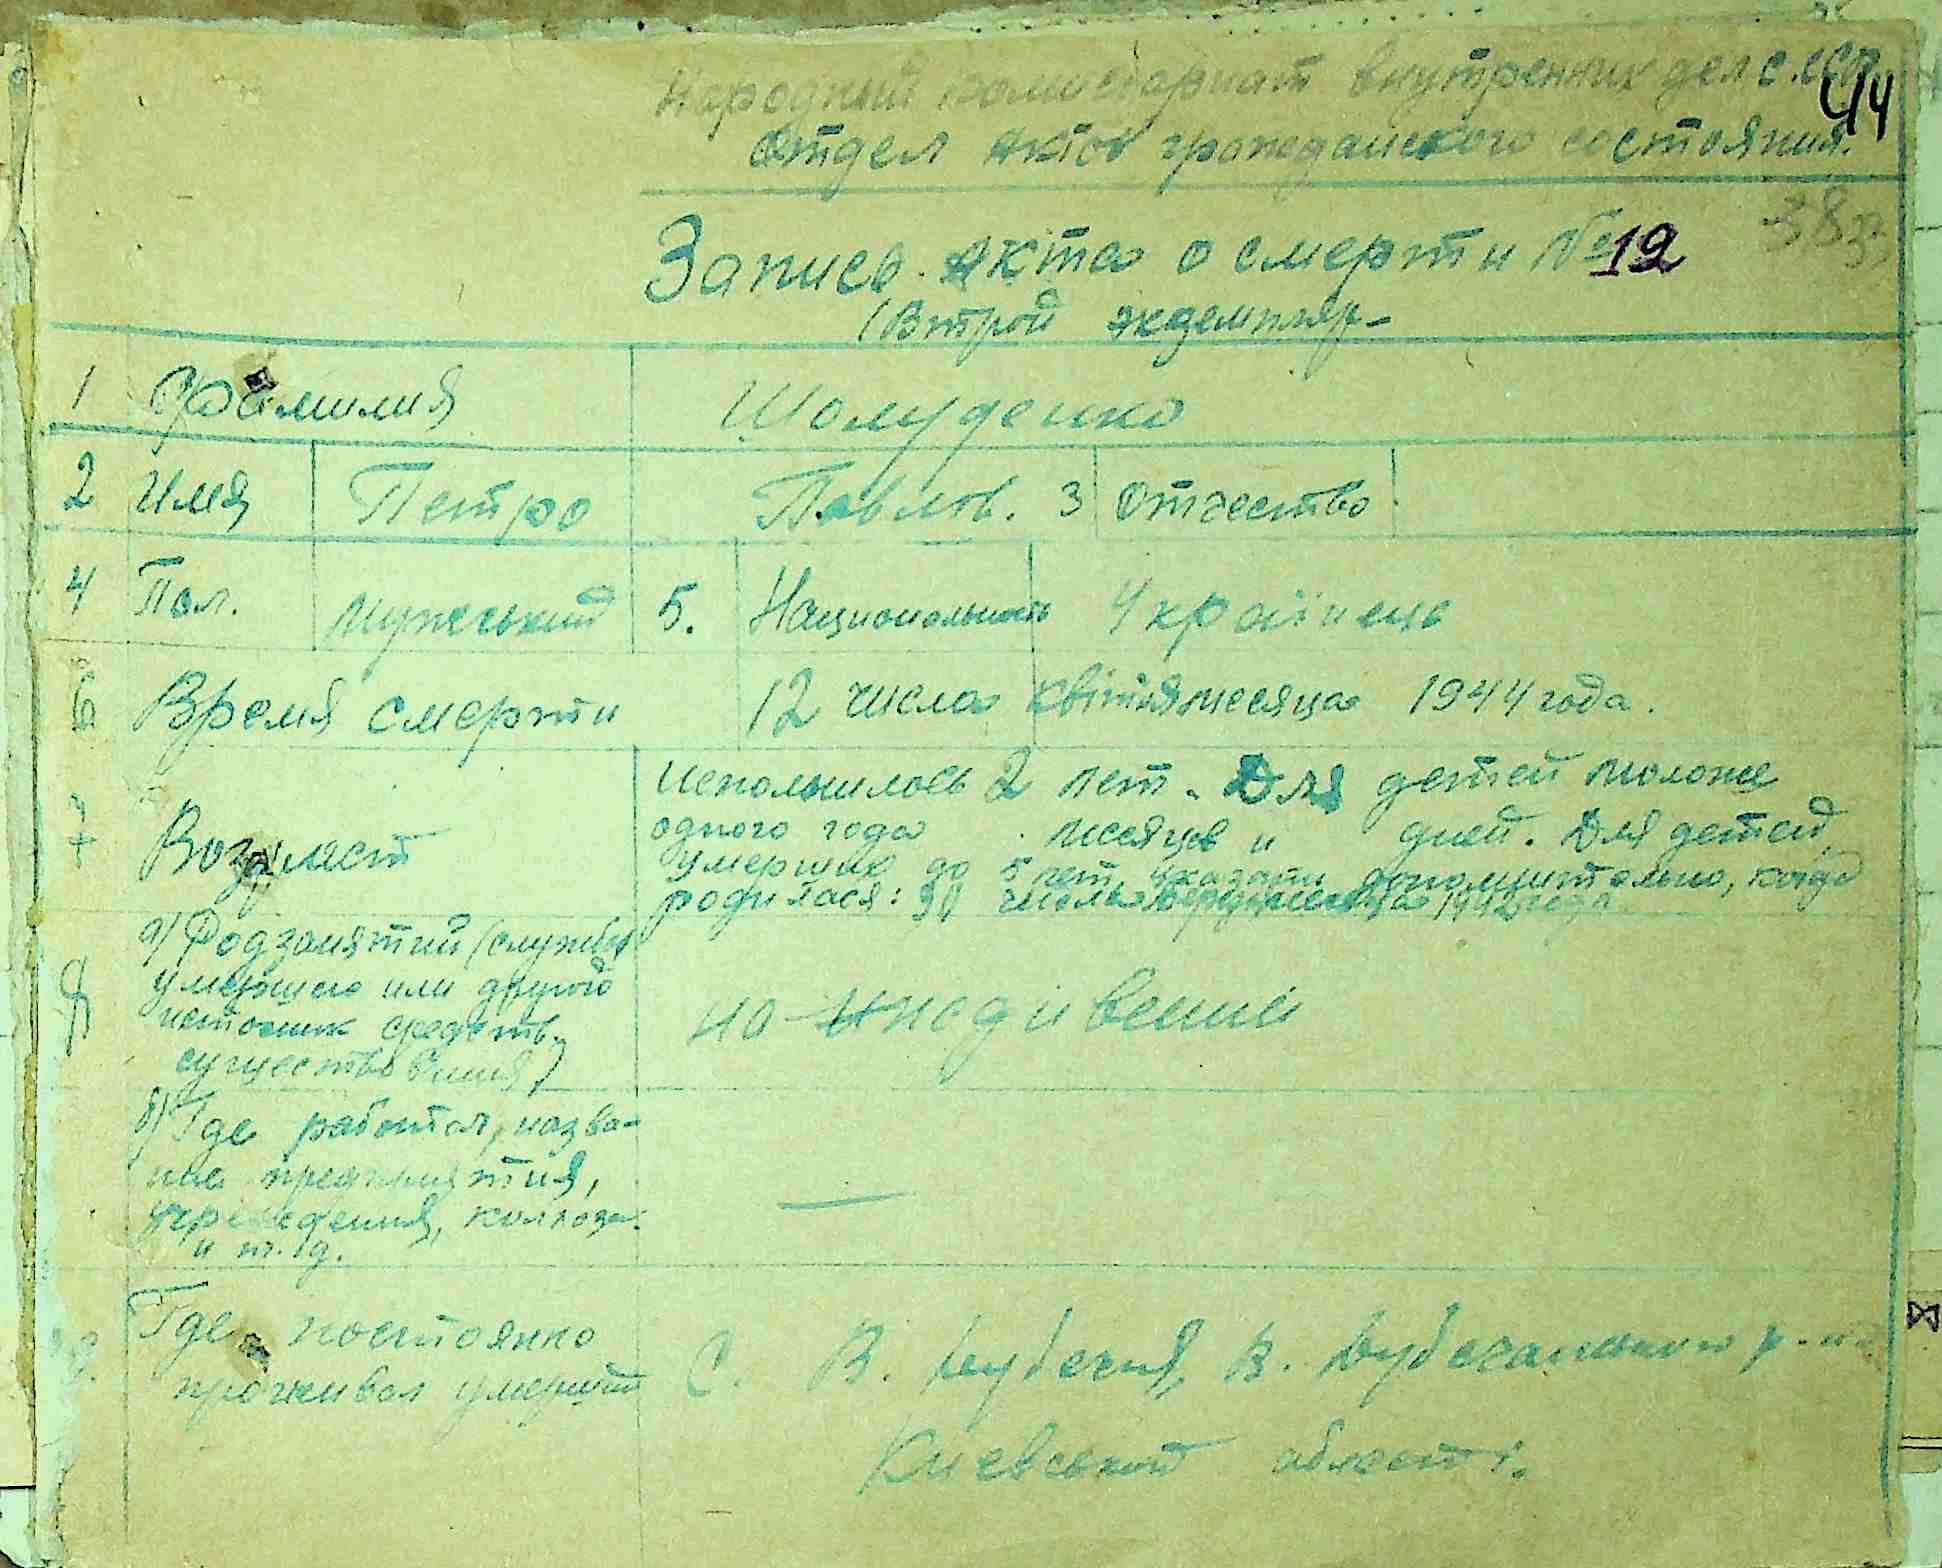 Народный комисариат внутренних дел С.ССР.
44
Отдел актов гражданского состояния.
38
Запись Акта о смерти № 12
(Втрой экземпляр-
1 Фамилия Шолуденко
2 Имя Петро Павлов. 3 Отчество
4 Пол. Мужеський 5. Национальность Українець
6 Время смерти 12 числа квітня месяца 1944 года.
7 Возраст
Исполнилось 2 лет. Для детей моложе
одного года месяцев и дней. Для детей,
умерших до 5 лет, указать дополнительно, когда
родилася: 30 числа месяца 1942 года
8 а) Род занятий (службы
умершего или другой
источник средств
существования)
на иждивении
б) Где работал, назва-
ние предприятия,
учреждения, колхоза
и т. д.
—
9. Где постоянно
проживал умерший
С. В. Дубечня, В. Дубечанского р-на
Киевський області.